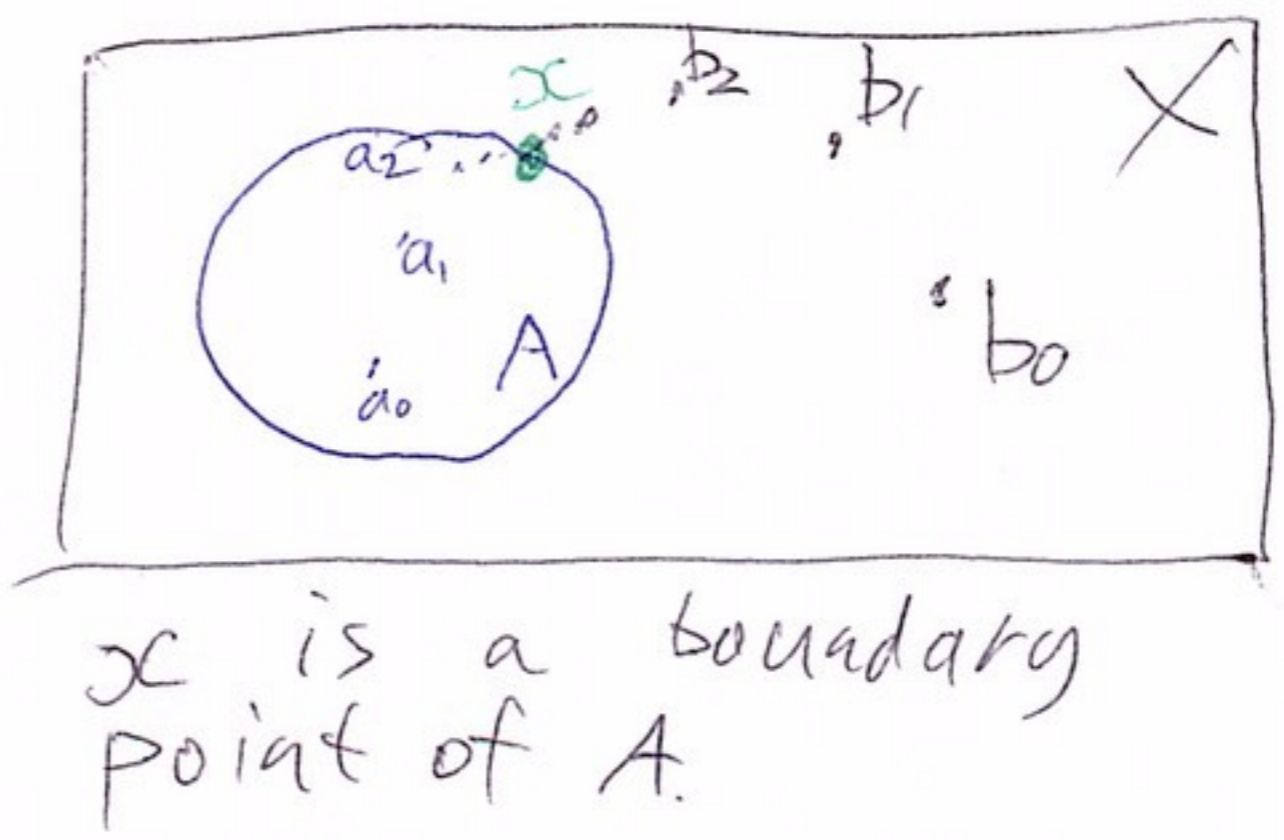 x b2 b1 X
a2
a1
b0
A
a0
x is a boundary
point of A.